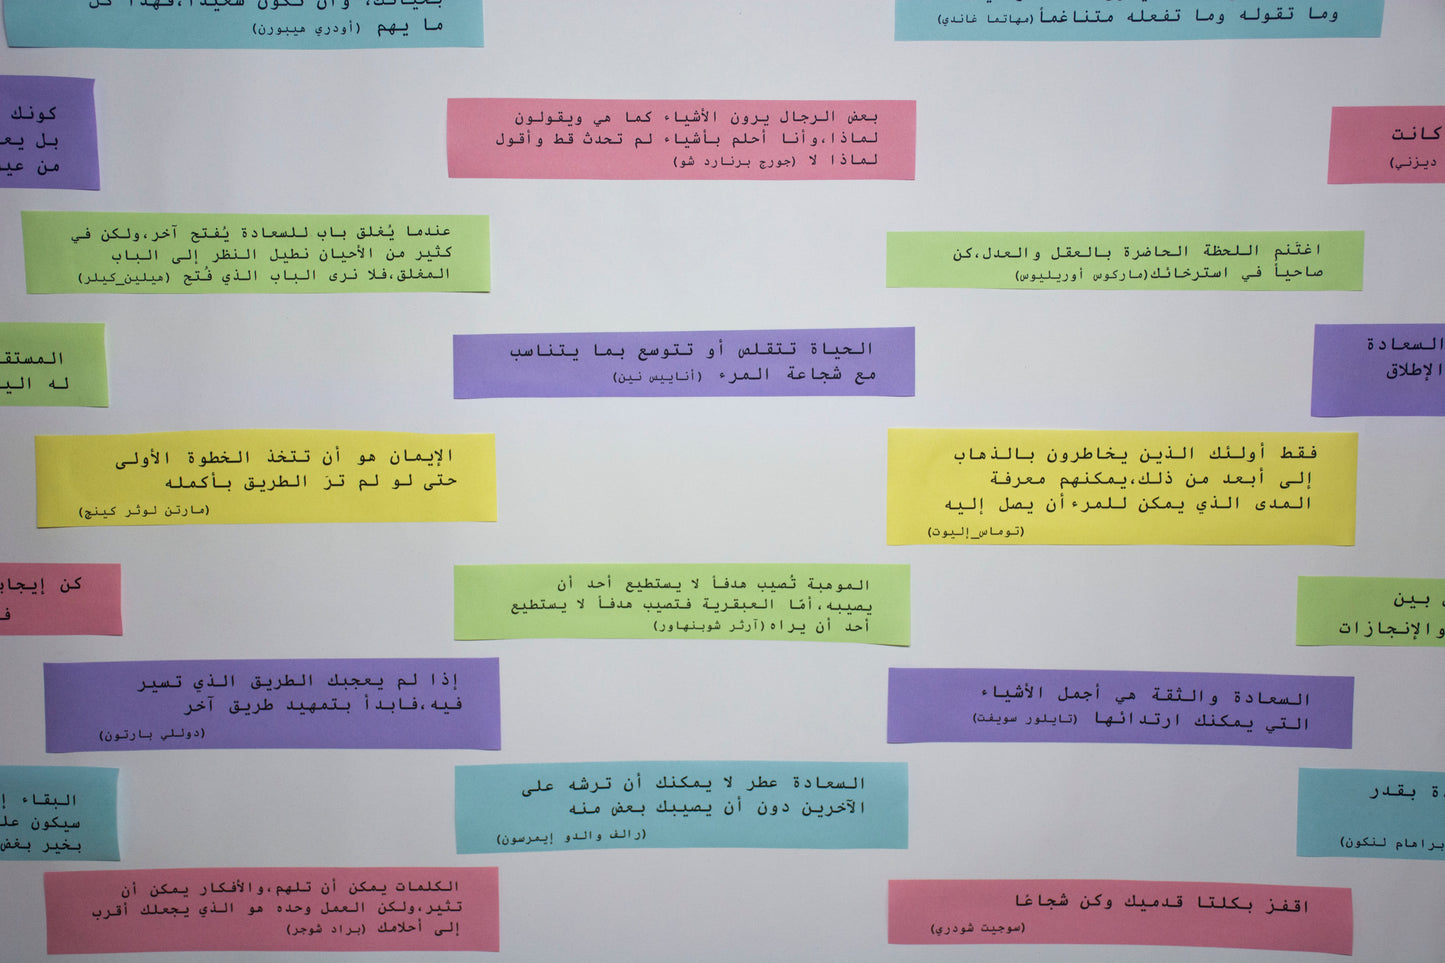 وما تقوله وما تفعله متناغماً(مهاتما غاندي)
بحياتك، وأن تكون سعيداً،فهذا كل
ما يهم (أودري هيبورن)
كانت
ديزني)
بعض الرجال يرون الأشياء كما هي ويقولون
لماذا،وأنا أحلم بأشياء لم تحدث قط وأقول
لماذا لا (جورج برنارد شو)
كونك
بل
من
اغتَنم اللحظة الحاضرة بالعقل والعدل،كن
صاحياً في استرخائك(ماركوس أوريليوس)
عندما يُغلق باب للسعادة يُفتح آخر،ولكن في
كثير من الأحيان نطيل النظر إلى الباب
المغلق،فلا نرى الباب الذي فُتح (هيلين_كيلر)
السعادة
الإطلاق
الحياة تتقلص أو تتوسع بما يتناسب
مع شجاعة المرء (أناييس نين)
له
فقط أولئك الذين يخاطرون بالذهاب
إلى أبعد من ذلك،يمكنهم معرفة
المدى الذي يمكن للمرءأن يصل إليه
(توماس_إليوت)
الإيمان هو أن تتخذ الخطوة الأولى
حتى لو لم ترَ الطريق بأكمله
(مارتن لوثر كينج)
بين
والإنجازات
الموهبة تُصيب هدفاً لا يستطيع أحد أن
يصيبه،أمّا العبقرية فتصيب هدفاً لا يستطيع
أحد أن يراه(آرثر شوبنهاور)
كن
السعادة والثقة هي أجمل الأشياء
التي يمكنك ارتدائها (تايلور سويفت)
إذا لم يعجبك الطريق الذي تسير
فيه،فابدأ بتمهيد طريق آخر
(دوللي بارتون)
بقدر
براهام لنكون)
السعادة عطر لا يمكنك أن ترشه على
الآخرين دون أن يصيبك بعض منه
(رالف والدو إيمرسون)
البقاء
سيكون
بخير بغض
اقفز بكلتا قدميك وكن شجاعًا
(سوجيت شودري)
الكلمات يمكن أن تلهم،والأفكار يمكن أن
تثير،ولكن العمل وحده هو الذي يجعلك أقرب
إلى أحلامك (براد شوجر)